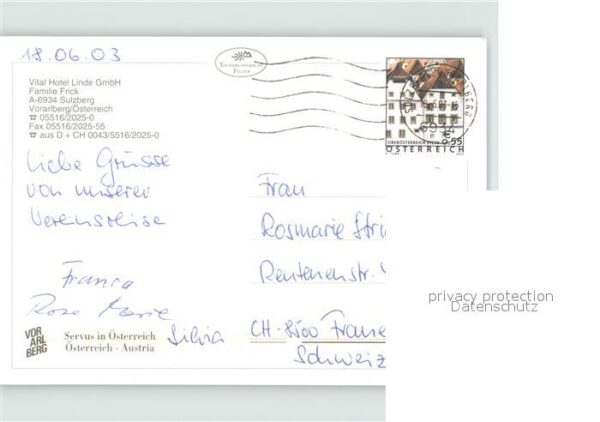 18.06.03
Vital Hotel Linde GmbH
Familie Frick
A-6934 Sulzberg
Vorarlberg/Österreich
☎ 05516/2025-0
Fax 05516/2025-55
☎ aus D + CH 0043/5516/2025-0
€ 0,55
ÖSTERREICH
Liebe Grüsse
von unserer
Vereinsreise
Franca
Rose Marie
Silvia
Frau
Rosmarie Stri
Rentenenstr.
CH-8500 Fraue
Schweiz
VOR
ARL
BERG
Servus in Österreich
Österreich - Austria
privacy protection
Datenschutz